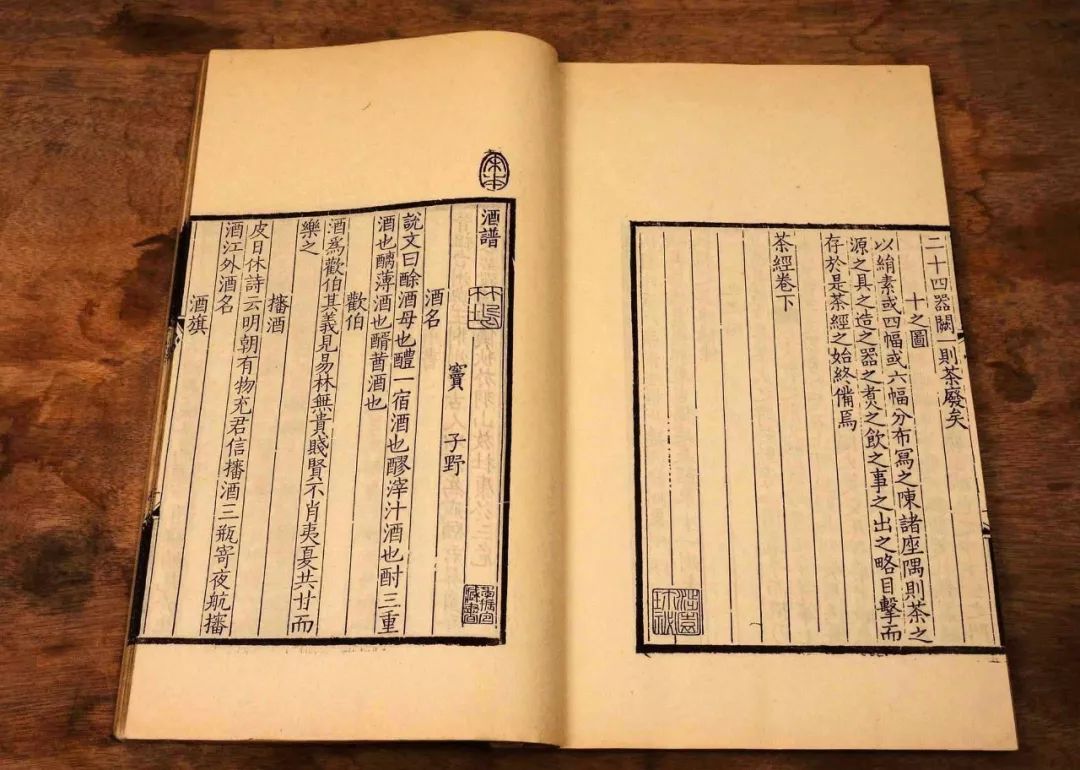 二十四器闕一則茶廢矣
十之圖
以絹素或四幅或六幅分布寫之陳諸座隅則茶之
源之具之造之器之煑之飲之事之出之略目擊而
存於是茶經之始終備焉
茶經卷下
酒譜
竇子野
酒名
說文曰酴酒母也醴一宿酒也醪滓汁酒也酎三重
酒也醨薄酒也醑莤酒也
歡伯
酒爲歡伯其義見易林無貴賤賢不肖夷夏共甘而
樂之
㨋酒
皮日休詩云明朝有物充君信㨋酒三瓶寄夜航㨋
酒江外酒名
酒旗